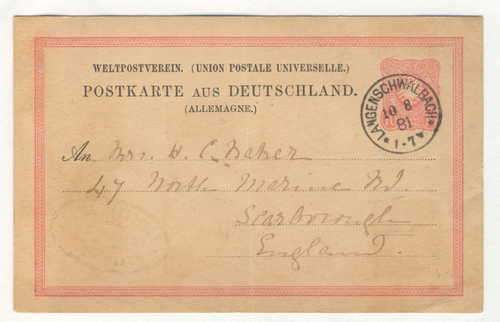 WELTPOSTVEREIN. (UNION POSTALE UNIVERSELLE.)
POSTKARTE AUS DEUTSCHLAND.
(ALLEMAGNE.)
* LANGENSCHWALBACH *
10 8
81
1-7 N
An Mrs. H. C. Baker
47 North Marine Rd.
Scarborough
England.